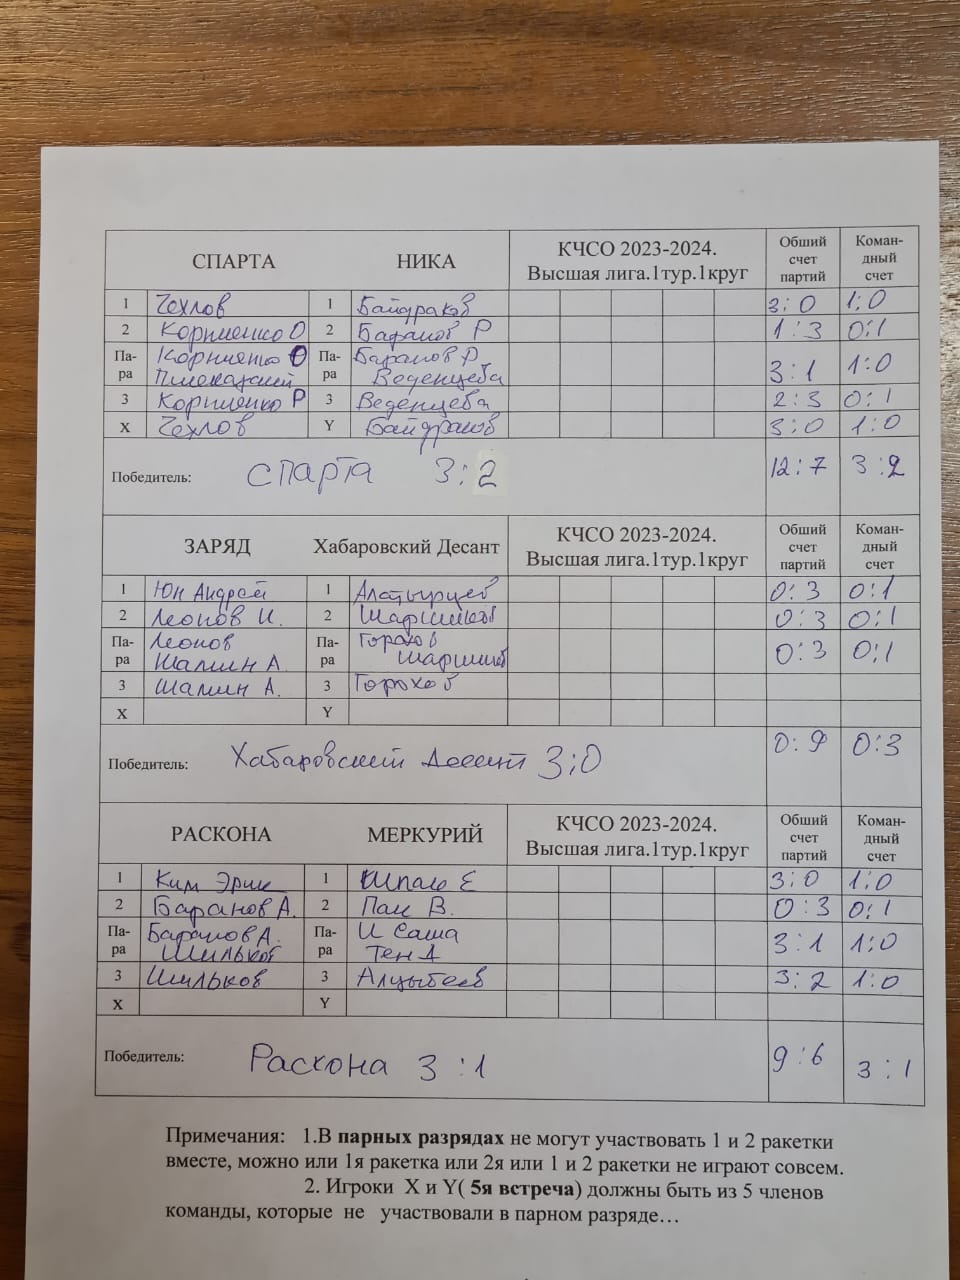 СПАРТА НИКА КЧСО 2023-2024. Общий Коман-
Высшая лига.1тур.1круг счет дный
партий счет
1 Чехлов 1 Байдраков 3:0 1:0
2 Корниенко О 2 Баранов Р 1:3 0:1
Па- Корниенко О Па- Баранов Р
ра ра Веденцева 3:1 1:0
3 Корниенко Р 3 Веденцева 2:3 0:1
X Чехлов Y Байдраков 3:0 1:0
Победитель: Спарта 3:2 12:7 3:2
ЗАРЯД Хабаровский Десант КЧСО 2023-2024. Общий Коман-
Высшая лига.1тур.1круг счет дный
партий счет
1 Юн Андрей 1 Алатырцев 0:3 0:1
2 Леонов И. 2 0:3 0:1
Па- Леонов Па- Горохов
ра Шамин А. ра 0:3 0:1
3 Шамин А. 3 Горохов
X Y
Победитель: Хабаровский Десант 3:0 0:9 0:3
РАСКОНА МЕРКУРИЙ КЧСО 2023-2024. Общий Коман-
Высшая лига.1тур.1круг счет дный
партий счет
1 Ким Эрик 1 Шпак Е 3:0 1:0
2 Баранов А. 2 Пак В. 0:3 0:1
Па- Баранов А. Па- И Саша
ра Шильков ра Тен А 3:1 1:0
3 Шильков 3 3:2 1:0
X Y
Победитель: Раскона 3:1 9:6 3:1
Примечания: 1.В парных разрядах не могут участвовать 1 и 2 ракетки
вместе, можно или 1я ракетка или 2я или 1 и 2 ракетки не играют совсем.
2. Игроки X и Y( 5я встреча) должны быть из 5 членов
команды, которые не участвовали в парном разряде…